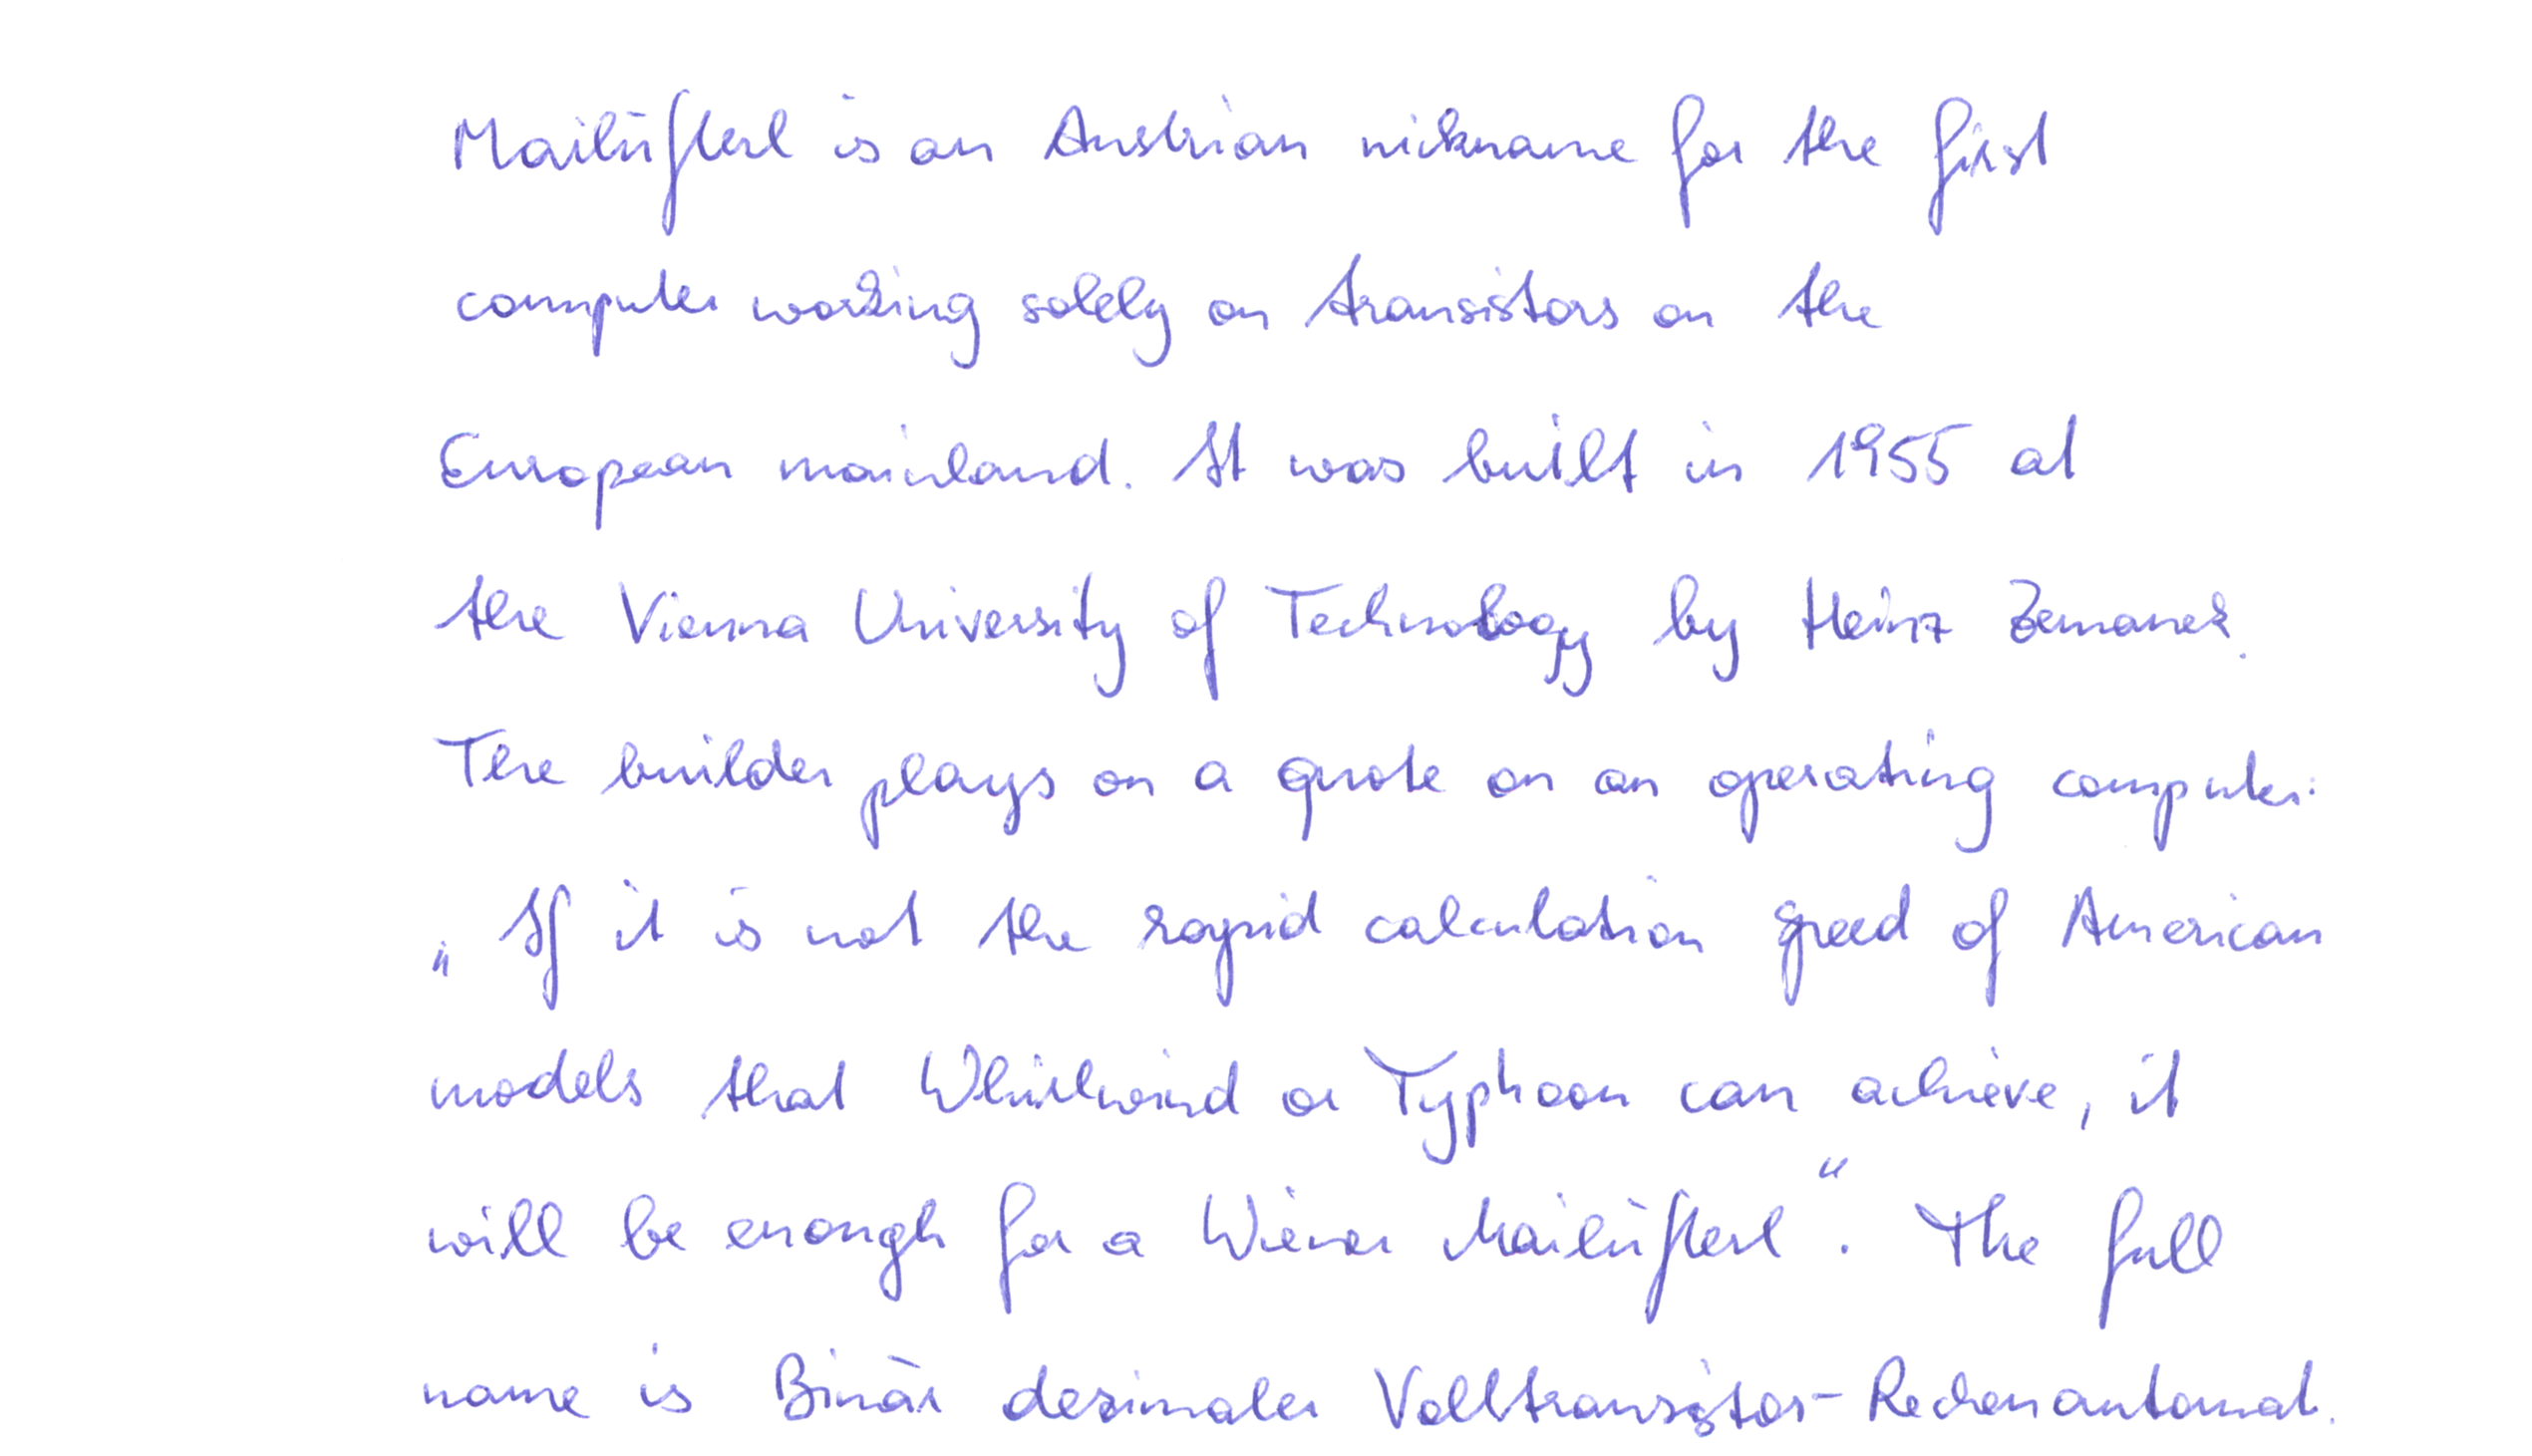 Mailüfterl is an Austrian nickname for the first
computer working solely on transistors on the
European mainland. It was built in 1955 at
the Vienna University of Technology by Heinz Zemanek.
The builder plays on a quote on an operating computer:
„If it is not the rapid calculation speed of American
models that Whirlwind or Typhoon can achieve, it
will be enough for a Wiener Mailüfterl“. The full
name is Binär dezimaler Volltransistor-Rechenautomat.